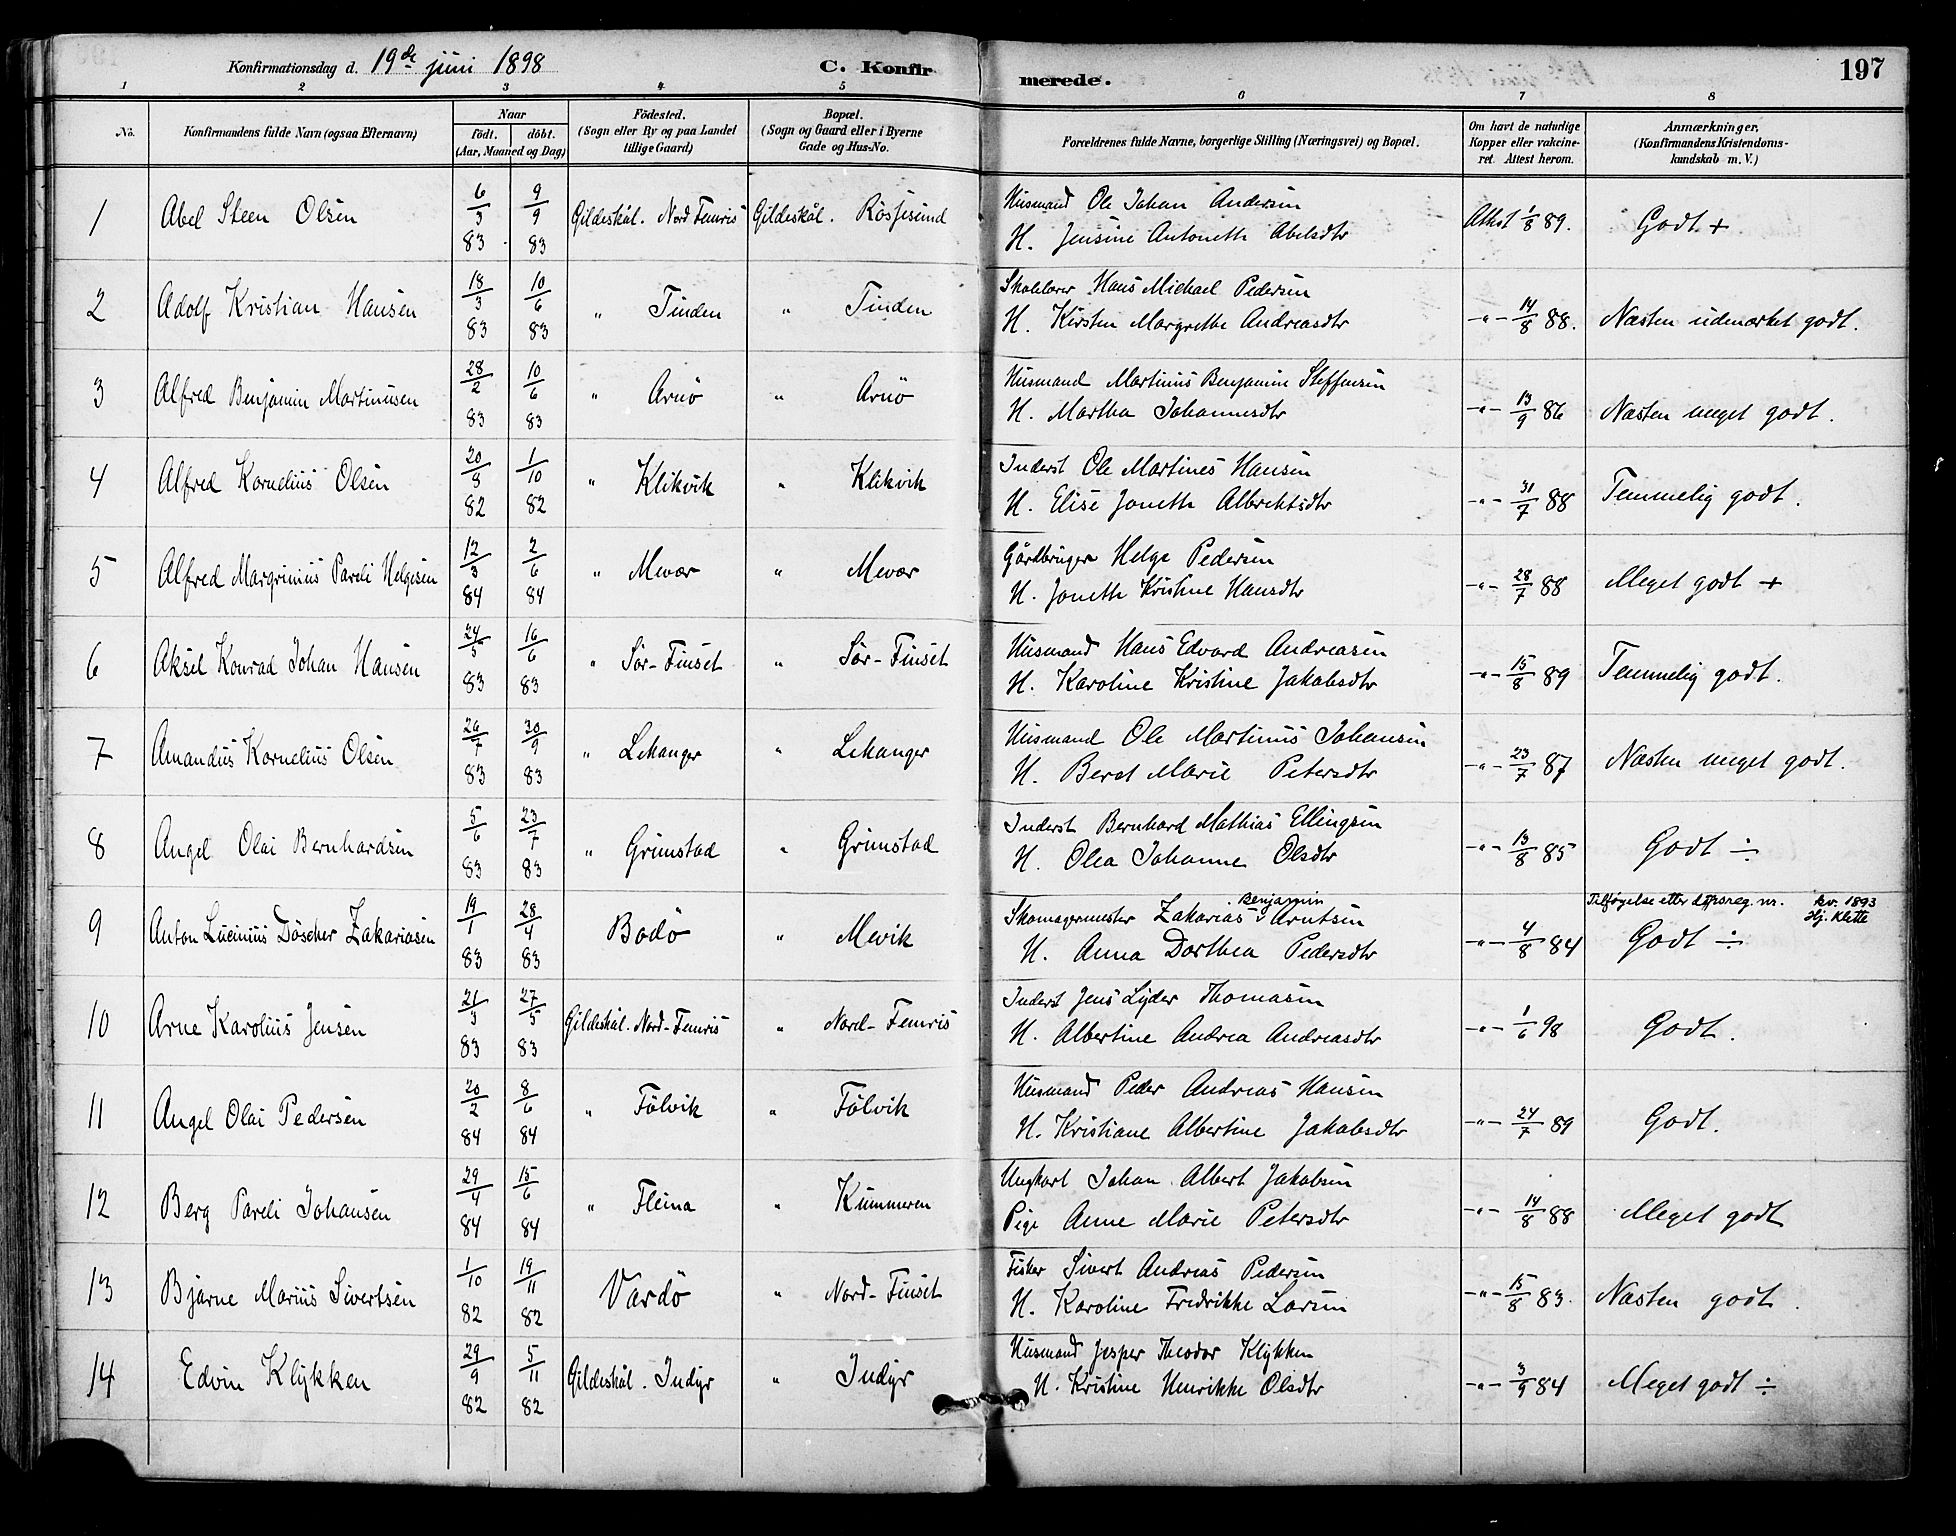 Konfirmationsdag d. 19de juni 1898 C. Konfirmerede. 197
1 2 3 4 5 6 7 8
No. Konfirmandens fulde Navn (ogsaa Efternavn) Naar födt. döbt. (Aar, Maaned og Dag) Födested. (Sogn eller By og paa Landet tillige Gaard) Bopæl. (Sogn og Gaard eller i Byerne Gade og Hus-No. Forældrenes fulde Navne, borgerlige Stilling (Næringsvei) og Bopæl. Om havt de naturlige Kopper eller vakcineret. Attest herom. Anmærkninger. (Konfirmandens Kristendomskundskab m. V.)
1 Abel Steen Olsen 6/3 83 9/9 83 Gildeskål. Nord Femris Gildeskål. Rössesund Husmand Ole Johan Andersen
H. Jensine Antoneth Abelsdtr Attest 1/8 89. Godt +
2 Adolf Kristian Hansen 18/3 83 10/6 83 " Tinden " Tinden Skolelærer Hans Michael Pedersen
H. Kirsten Margrethe Andreasdtr -"- 14/8 88. Næsten udmærket godt.
3 Alfred Benjamin Martinusen 28/2 83 10/6 83 " Arnö " Arnö Husmand Martinus Benjamin Steffensen
H. Martha Johannesdtr -"- 13/9 86 Næsten meget godt.
4 Alfred Kornelius Olsen 20/8 82 1/10 82 " Klikvik " Klikvik Inderst Ole Martines Hansen
H. Elise Joneth Albrektsdtr -"- 31/7 88 Temmelig godt.
5 Alfred Margrinius Pareli Helgesen 12/3 84 2/6 84 " Mevær " Mevær Gårdbruger Helge Pedersen
H. Joneth Kristine Hansdtr -"- 28/7 88 Meget godt +
6 Aksel Konrad Johan Hansen 24/5 83 16/6 83 " Sör-Finset " Sör-Finset Husmand Hans Edvard Andreasen
H. Karoline Kristine Jakobsdtr -"- 15/8 89 Temmelig godt.
7 Amandus Kornelius Olsen 26/7 83 30/9 83 " Lekanger " Lekanger Husmand Ole Martinus Johansen
H. Beret Marie Petersdtr -"- 23/7 87 Næsten meget godt.
8 Angel Olai Bernhardsen 5/6 83 23/7 83 " Grimstad " Grimstad Inderst Bernhard Mathias Ellingsen
H. Olea Johanne Olsdtr -"- 13/8 85 Godt ÷
9 Anton Lucinius Döscher Zakariasen 19/1 83 28/4 83 Bodö " Mevik Skomagermester Zakarias Benjamin Arntsen
H. Anna Dorthea Pedersdtr -"- 4/8 84 Tilføyelse etter dåpsreg. nr. kv. 1893
Hj. Klette
Godt ÷
10 Arne Karolius Jensen 21/3 83 27/5 83 Gildeskål. Nord-Femris " Nord-Femris Inderst Jens Lyder Thomasen
H. Albertine Andrea Andreasdtr -"- 1/6 98 Godt.
11 Angel Olai Pedersen 20/2 84 8/6 84 " Fölvik " Fölvik Husmand Peder Andreas Hansen
H. Kristiane Albertine Jakobsdtr -"- 24/7 89 Godt.
12 Berg Pareli Johansen 29/4 84 15/6 84 " Fleina " Kummeren Ungkarl Johan Albert Jakobsen
Pige Anne Marie Petersdtr -"- 14/8 88 Meget godt
13 Bjarne Marius Sivertsen 1/10 82 19/11 82 Vardö " Nord-Finset Fisker Sivert Andreas Pedersen
H. Karoline Fredrikke Larsen -"- 15/8 83. Næsten godt.
14 Edvin Klykken 29/9 82 5/11 82 Gildeskål. Indyr " Indyr Husmand Jesper Theodor Klykken
H. Kristine Henrikke Olsdtr -"- 3/9 84 Meget godt ÷